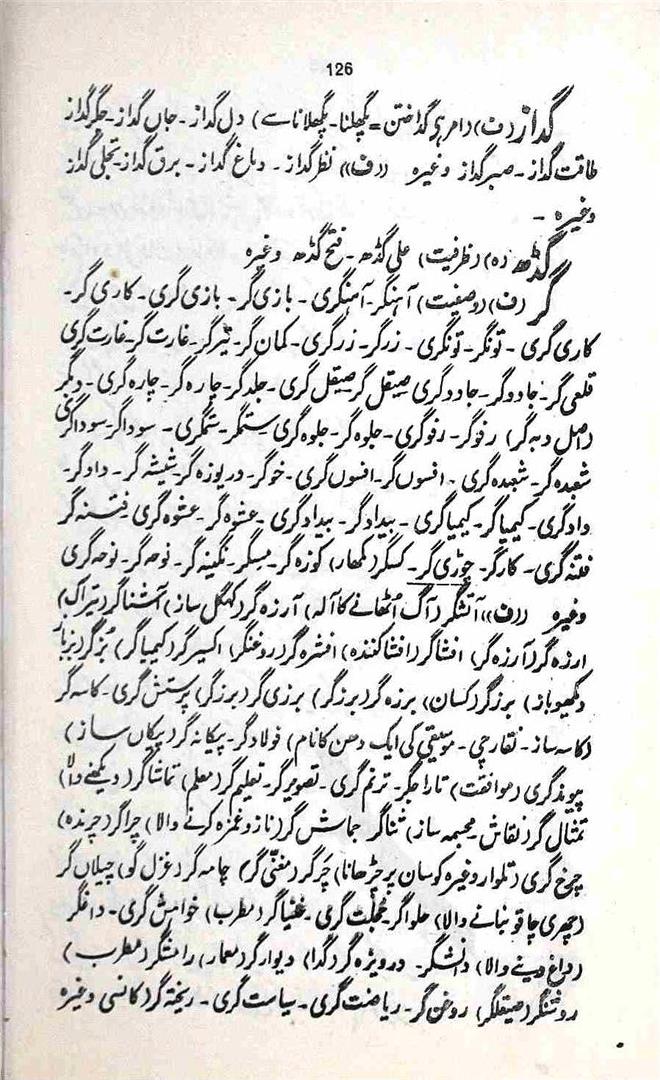 126
گداز (ف) (امر ہی گداختن = پگھلنا۔ پگھلانا سے) دل گداز۔ جاں گداز۔ جگر گداز
طاقت گداز۔ صبر گداز وغیرہ ((ف)) نظر گداز۔ دماغ گداز۔ برق گداز۔ تجلی گداز
وغیرہ۔
گڈھ (ہ) (ظرفیت) علی گڈھ۔ فتح گڈھ وغیرہ
گر (ف) (وصفیت) آہنگر۔ آہنگری۔ بازی گر۔ بازی گری۔ کاری گر۔
کاری گری۔ تونگر۔ تونگری۔ زرگر۔ زرگری۔ کمان گر۔ تیرگر۔ غارت گر۔ غارت گری
قلعی گر۔ جادوگر۔ جادوگری صیقل گر صیقل گری۔ جلدگر۔ چارہ گر۔ چارہ گری۔ دبگر
(اصل دبہ گر) رفوگر۔ رفوگری۔ جلوہ گر۔ جلوہ گری ستمگر۔ ستمگری۔ سوداگر۔ سوداگری
شعبدہ گر۔ شعبدہ گری۔ افسوں گر۔ افسوں گری۔ خوگر۔ دریوزہ گر۔ شیشہ گر۔ دادگر۔
دادگری۔ کیمیاگر۔ کیمیاگری۔ بیدادگر۔ بیدادگری۔ عشوہ گر۔ عشوہ گری فتنہ گر
فتنہ گری۔ کارگر۔ چوڑی گر۔ کسگر (کمھار) کوزہ گر۔ مسگر۔ نگینہ گر۔ نوحہ گر۔ نوحہ گری
وغیرہ ((ف)) آتشگر (آگ اٹھانے کا آلہ) آرزہ گر (کہگل ساز) آشناگر (تیراک)
ارزہ گر (آرزہ گر) افشاگر (افشا کنندہ) افشرہ گر (روغنگر) اکسیرگر (کیمیاگر) بزگر (بزباز
دیکھو باز) برزگر (کسان) برزہ گر (برزگر) برزی گر (برزگر) پرستش گری۔ کاسہ گر
(کاسہ ساز۔ نقارچی۔ موسیقی کی ایک دھن کا نام) فولادگر۔ پیکانہ گر (پیکاں ساز)
پیوندگری (موافقت) تاراجگر۔ ترنم گری۔ تصویرگر۔ تعلیم گر (معلم) تماشاگر (دیکھنے والا)
تمثال گر (نقاش۔ مجسمہ ساز) ثناگر جماش گر (ناز و غمزہ کرنے والا) چراگر (چرندہ)
چرخ گری (تلوار وغیرہ کو سان پر چڑھانا) چرگر (مغنّی گر) چامہ گر (غزل گو) چیلاں گر
(چھری چاقو بنانے والا) حلواگر خجلت گری۔ خنیاگر (مطرب) خواہش گری۔ داغگر
(داغ دینے والا) دانشگر۔ درویزہ گر (گدا) دیوارگر (معمار) رامشگر (مطرب)
روشنگر (صیقلگر) روغن گر۔ ریاضت گری۔ سیاست گری۔ ریختہ گر (کانسی وغیرہ